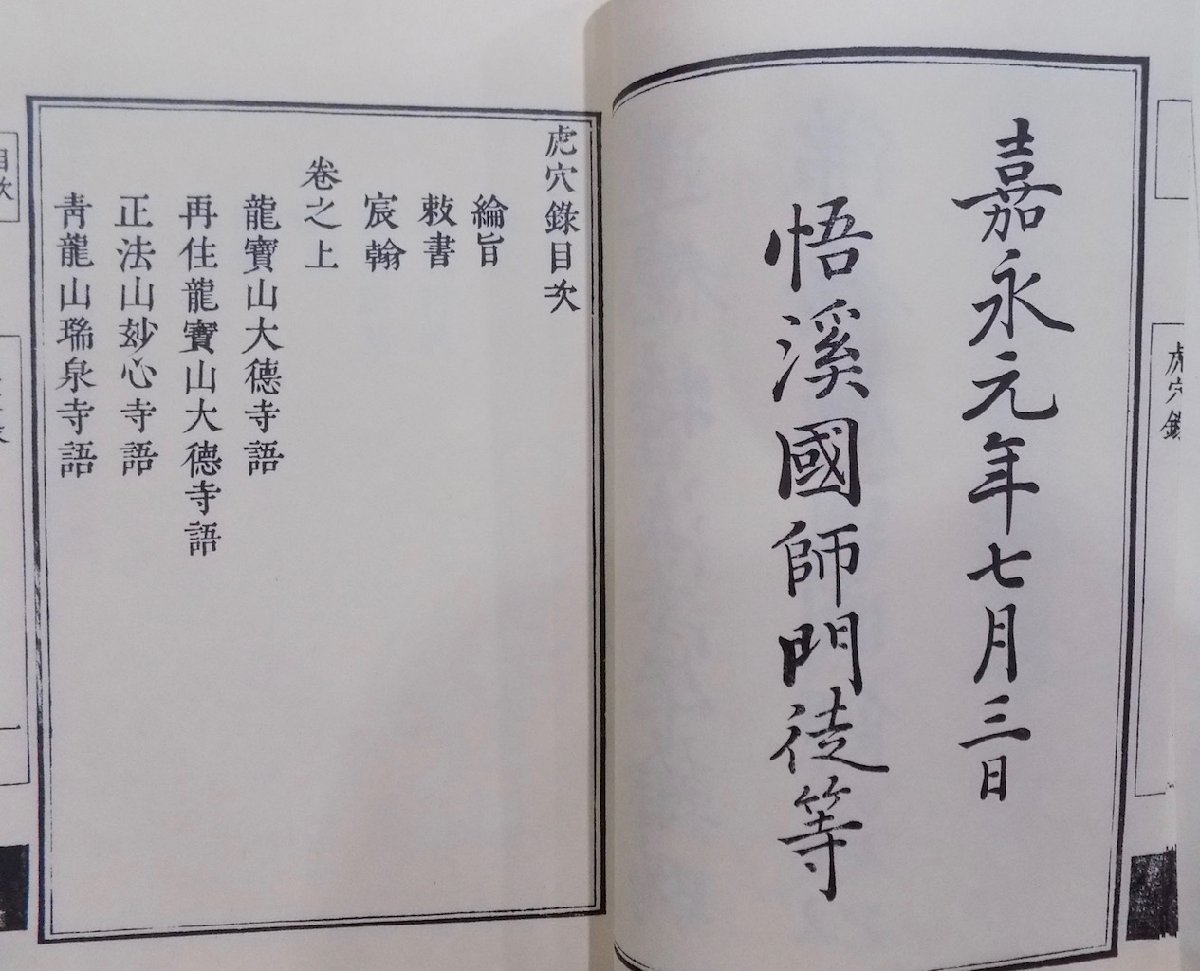 虎穴錄
嘉永元年七月三日
悟溪國師門徒等
虎穴錄目次
綸旨
敕書
宸翰
卷之上
龍寶山大德寺語
再住龍寶山大德寺語
正法山玅心寺語
靑龍山瑞泉寺語
目次